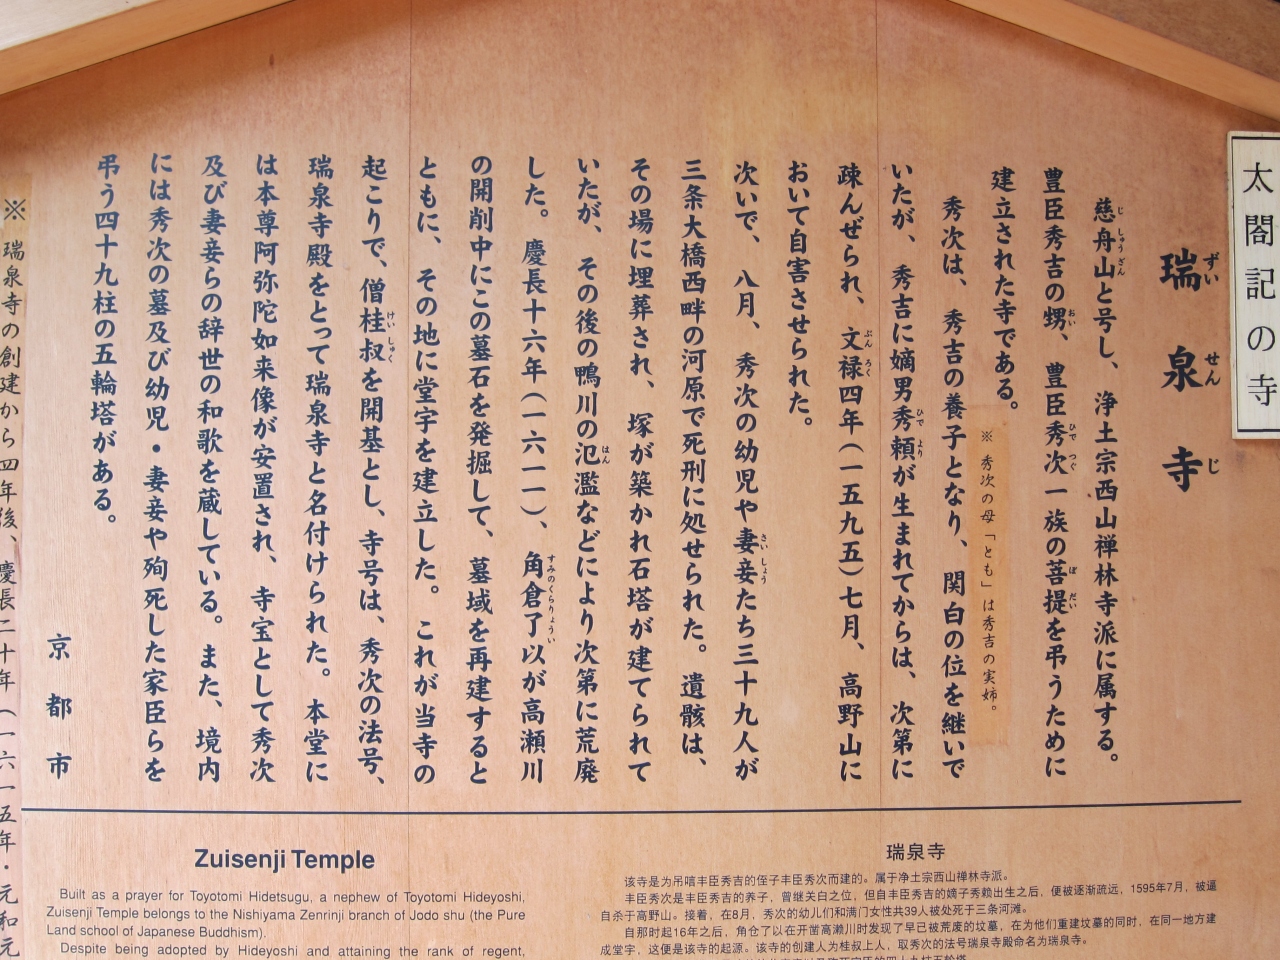 太閤記の寺
瑞泉寺
ずいせんじ
慈舟山と号し、浄土宗西山禅林寺派に属する。
豊臣秀吉の甥、豊臣秀次一族の菩提を弔うために
建立された寺である。
※秀次の母「とも」は秀吉の実姉。
秀次は、秀吉の養子となり、関白の位を継いで
いたが、秀吉に嫡男秀頼が生まれてからは、次第に
疎んぜられ、文禄四年(一五九五)七月、高野山に
おいて自害させられた。
次いで、八月、秀次の幼児や妻妾たち三十九人が
三条大橋西畔の河原で死刑に処せられた。遺骸は、
その場に埋葬され、塚が築かれ石塔が建てられて
いたが、その後の鴨川の氾濫などにより次第に荒廃
した。慶長十六年(一六一一)、角倉了以が高瀬川
の開削中にこの墓石を発掘して、墓域を再建すると
ともに、その地に堂宇を建立した。これが当寺の
起こりで、僧桂叔を開基とし、寺号は、秀次の法号、
瑞泉寺殿をとって瑞泉寺と名付けられた。本堂に
は本尊阿弥陀如来像が安置され、寺宝として秀次
及び妻妾らの辞世の和歌を蔵している。また、境内
には秀次の墓及び幼児・妻妾や殉死した家臣らを
弔う四十九柱の五輪塔がある。
京都市
※瑞泉寺の創建から四年後、慶長二十年(一六一五年・元和元
Zuisenji Temple
Built as a prayer for Toyotomi Hidetsugu, a nephew of Toyotomi Hideyoshi,
Zuisenji Temple belongs to the Nishiyama Zenrinji branch of Jodo shu (the Pure
Land school of Japanese Buddhism).
Despite being adopted by Hideyoshi and attaining the rank of regent,
瑞泉寺
该寺是为吊唁丰臣秀吉的侄子丰臣秀次而建的。属于净土宗西山禅林寺派。
丰臣秀次是丰臣秀吉的养子，曾继关白之位，但自丰臣秀吉的嫡子秀赖出生之后，便被逐渐疏远，1595年7月，被逼
自杀于高野山。接着，在8月，秀次的幼儿们和满门女性共39人被处死于三条河滩。
自那时起16年之后，角仓了以在开凿高濑川时发现了早已被荒废的坟墓，在为他们重建坟墓的同时，在同一地方建
成堂宇，这便是该寺的起源。该寺的创建人为桂叔上人，取秀次的法号瑞泉寺殿命名为瑞泉寺。